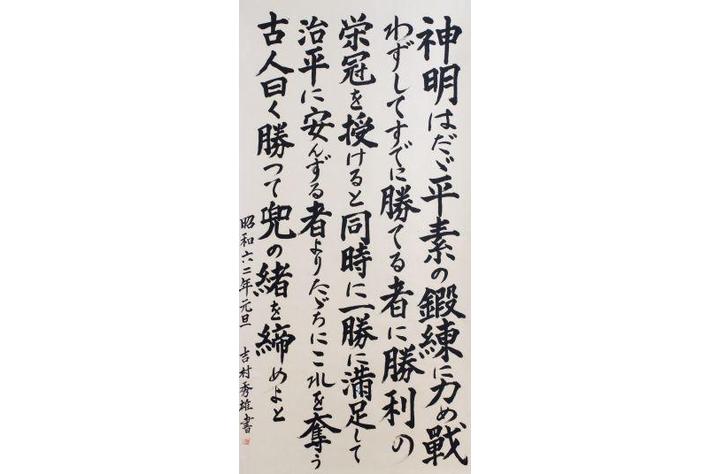 神明はたゞ平素の鍛練に力め戰
わずしてすでに勝てる者に勝利の
栄冠を授けると同時に一勝に満足して
治平に安んずる者よりたゞちにこれを奪う
古人曰く勝つて兜の緒を締めよと
昭和六二年元旦 吉村秀雄書